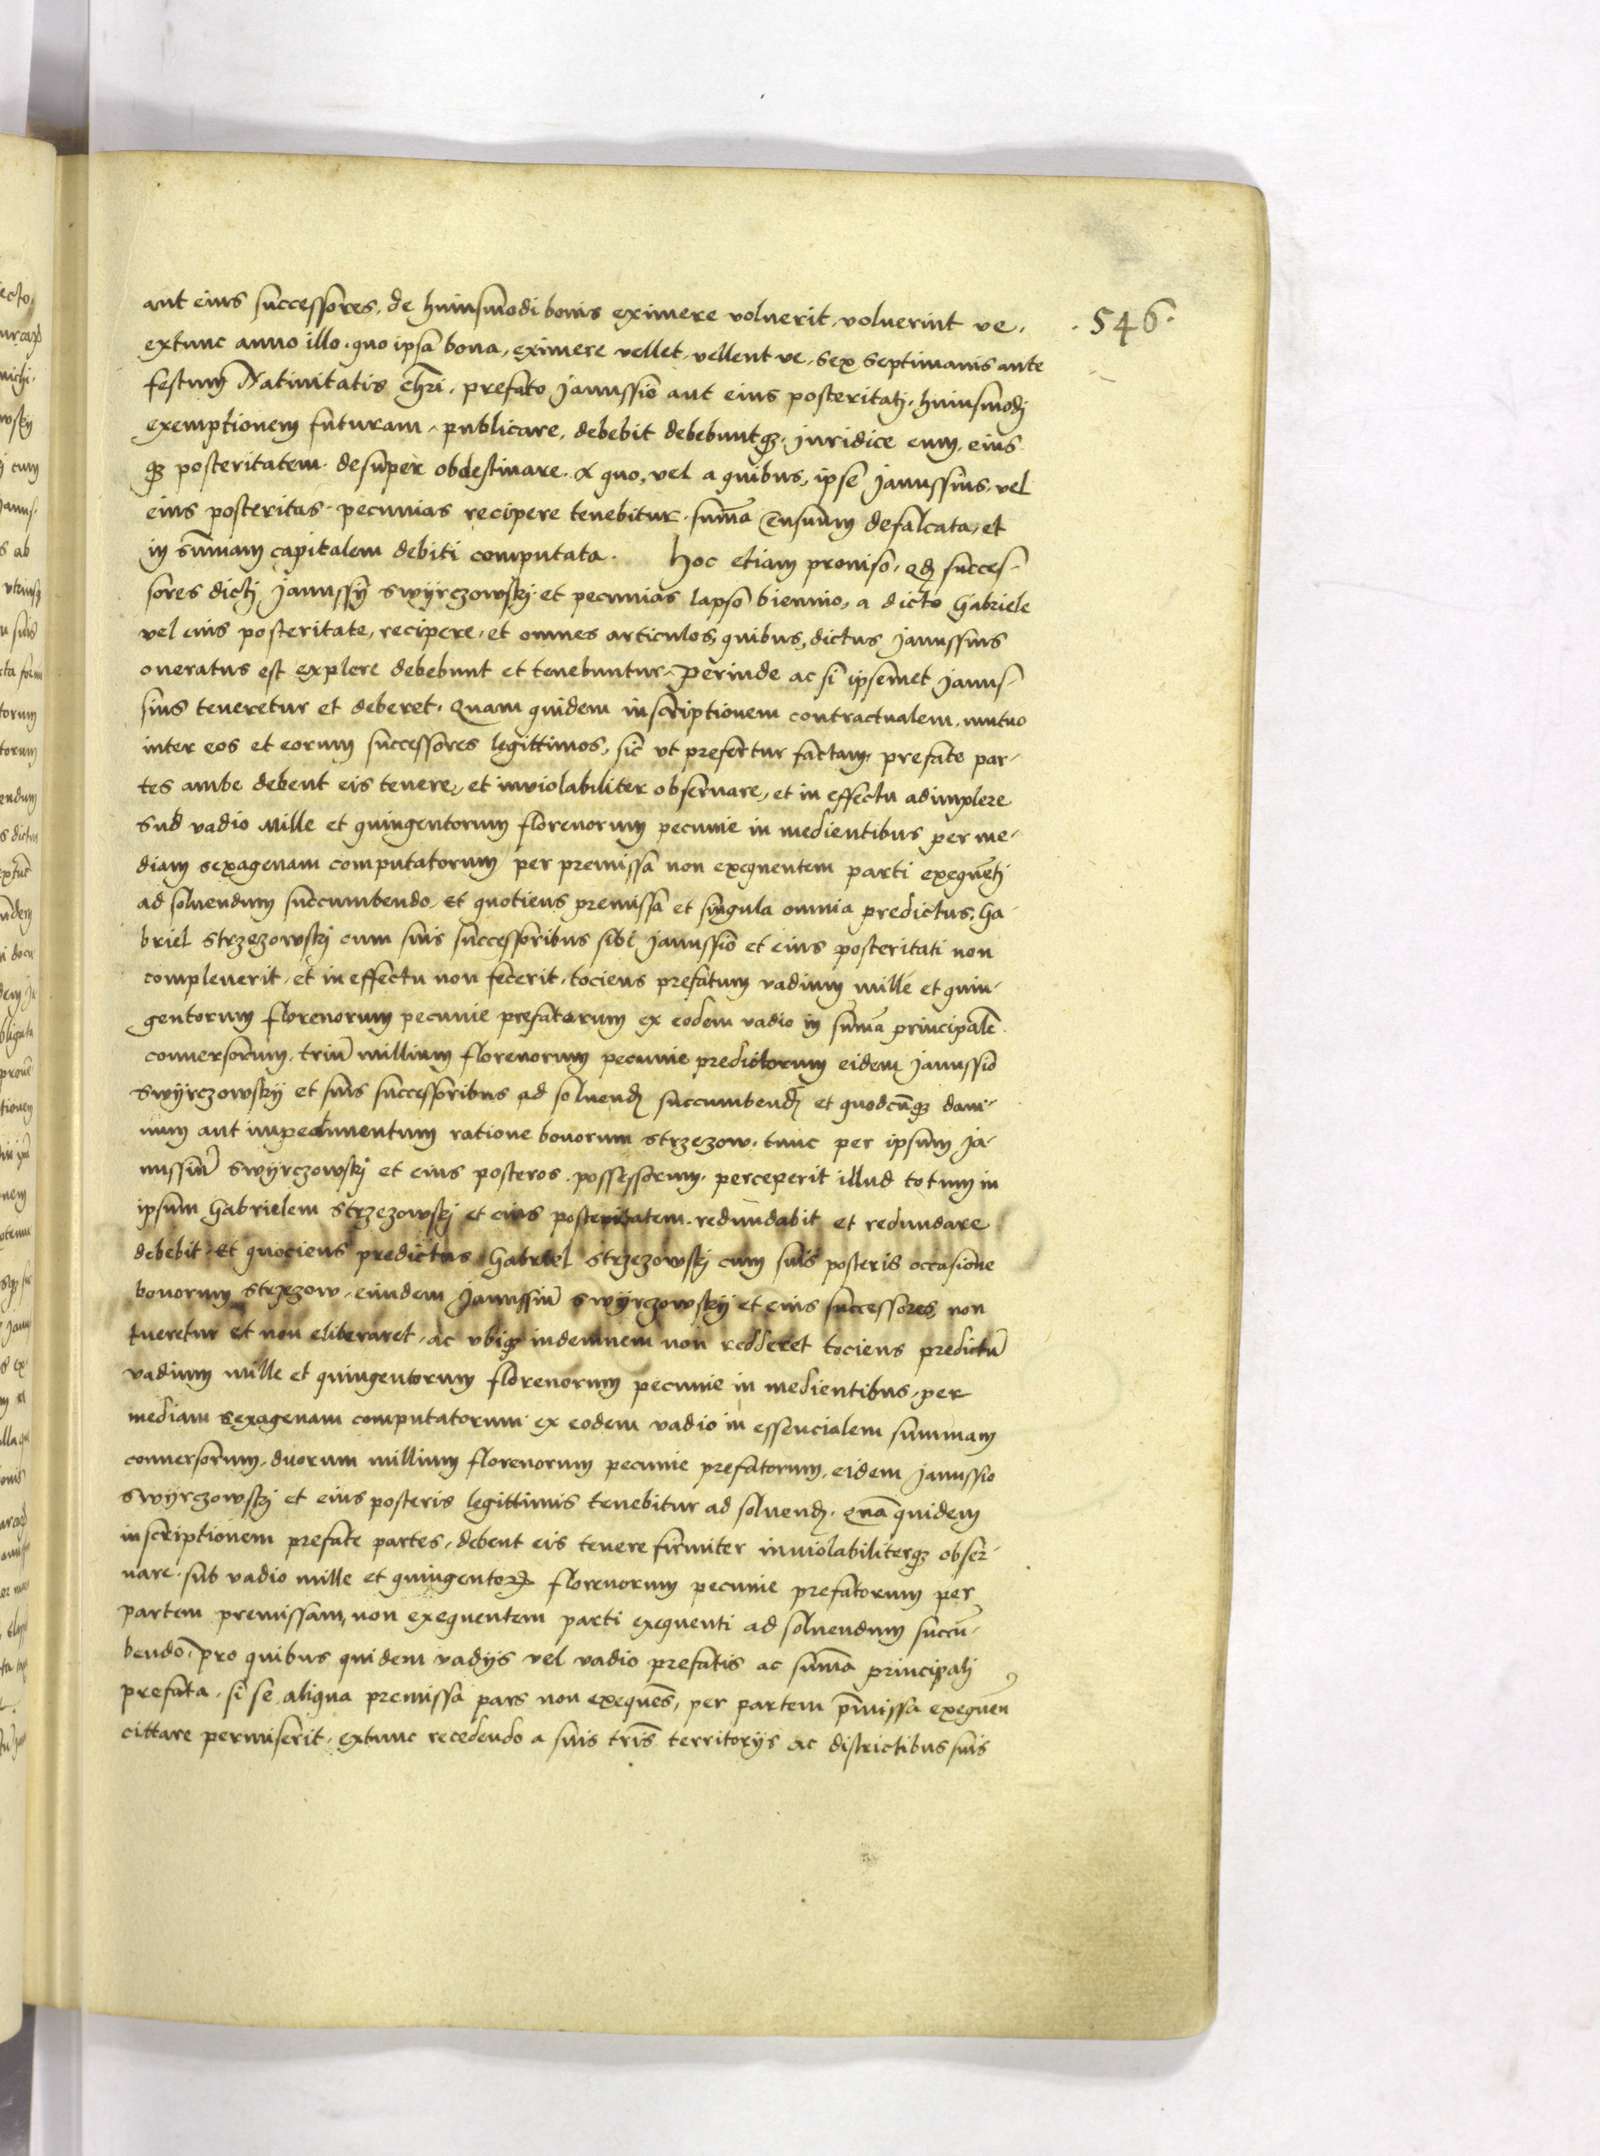 546
aut eius successores, de huiusmodi bonis eximere voluerit, voluerint ve,
extunc anno illo, quo ipsa bona, eximere vellet, vellent ve, sex septimanis ante
festum Nativitatis Chri, prefato Janussio aut eius posteritati, huiusmodj
exemptionem futuram, publicare, debebit debebuntqȝ, juridice eum, eius
qȝ posteritatem desuper obdestinare. A quo, vel a quibus, ipse Janussius, vel
eius posteritas pecunias recipere tenebitur, suma censuum defalcata, et
in sumam capitalem debiti computata. Hoc etiam proviso, qd succes-
sores dictj Janussÿ Swÿrczowskj et pecunias lapso biennio, a dicto Gabriele
vel eius posteritate, recipere, et omnes articulos, quibus, dictus Janussius
oneratus est explere debebunt et tenebuntur, perinde ac si ipsemet Janus-
sius teneretur et deberet. Quam quidem inscriptionem contractualem, mutuo
inter eos et eorum successores legittimos, sic ut prefertur factam, prefate par-
tes ambe debent eis tenere, et inviolabiliter observare, et in effectu adimplere
Sub vadio Mille et quingentorum florenorum pecunie in medientibus per me-
diam sexagenam computatorum per premissa non exequentem parti exequetj
ad solvendum succumbendo. Et quotiens premissa et singula omnia predictus, Ga-
briel Strzezowskj cum suis successoribus sibi Janussio et eius posteritati non
compleverit, et in effectu non fecerit, tociens prefatum vadium mille et quin-
gentorum florenorum pecunie prefatorum ex eodem vadio in suma principale
conversorum, triu millium florenorum pecunie predictorum eidem Janussio
Swÿrczowskÿ et suis successoribus ad solvend succumbend et quodcuqȝ dam-
num aut impedimentum ratione bonorum Strzezow, tunc per ipsum Ja-
nussiu Swÿrczowskj et eius posteros possessorum, perceperit illud totum in
ipsum Gabrielem Strzezowskj et eius posteritatem redundabit et redundare
debebit. Et quociens predictus Gabriel Strzezowskj cum suis posteris occasione
bonorum Strzezow, eundem Janussiu Swÿrczowskÿ et eius successores non
tueretur et non eliberaret, ac ubiqȝ indemnem non redderet tociens predictu
vadium mille et quingentorum florenorum pecunie in medientibus, per
mediam sexagenam computatorum ex eodem vadio in essencialem summam
conversorum, duorum millium florenorum pecunie prefatorum, eidem Janussio
Swÿrczowskj et eius posteris legittimis tenebitur ad solvend. Qua quidem
inscriptionem prefate partes, debent eis tenere firmiter inviolabiliterqȝ obser-
vare, sub vadio mille et quingentoꝝ florenorum pecunie prefatorum per
partem premissam, non exequentem parti exequenti ad solvendum succu-
bendo, pro quibus quidem vadÿs vel vadio prefatis ac suma principalj
prefata, si se aliqua premissa pars non exeques, per partem pmissa exequen
cittare permiserit, extunc recedendo a suis tris territorÿs ac districtibus suis